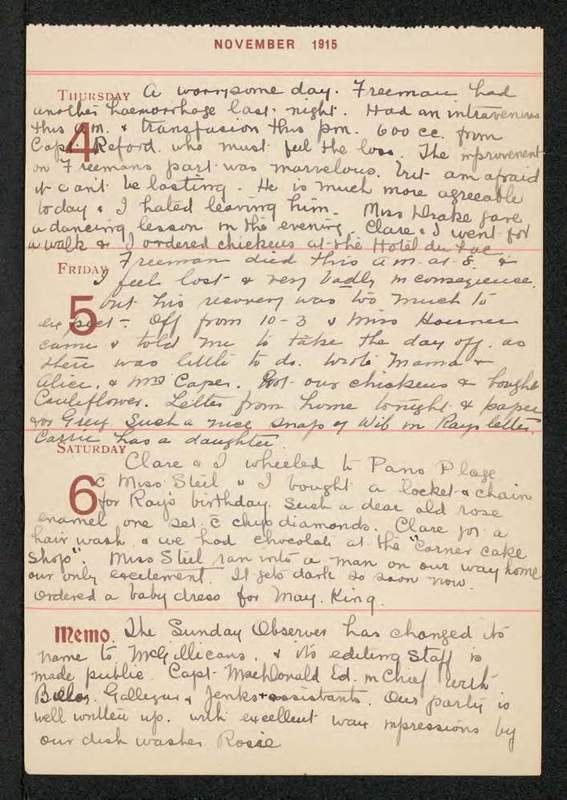 NOVEMBER 1915
THURSDAY A worrysome day. Freeman had
another haemorrhage last night. Had an intravenous
4 this a.m. & transfusion this pm. 600 cc. from
Capt. Reford who must feel the loss. The improvement
on Freemans part was marvelous, but am afraid
it can't be lasting. He is much more agreeable
today & I hated leaving him. Miss Drake gave
a dancing lesson in the evening. Clare & I went for
a walk & I ordered chickens at the Hotel du Lac
FRIDAY Freeman died this a.m. at 8. &
I feel lost & very badly in consequence.
5 but his recovery was too much to
expect - Off from 10-3 & Miss
came & told me to take the day off. as
there was little to do. Wrote Mama &
Alice, & Mrs Caper. Got our chickens & bought
Cauliflower. Letter from home tonight & paper
for Greig Such a nice snap of Wib in Rays letter.
Carrie has a daughter
SATURDAY
Clare & I wheeled to Paris Plage
6 c Miss Steel & I bought a locket & chain
for Ray's birthday. Such a dear old rose
enamel one set c chip diamonds. Clare for a
hair wash & we had chocolate at the "corner cake
shop". Miss Steel ran into a man on our way home
our only excitement It gets dark so soon now.
Ordered a baby dress for May. King.
Memo. The Sunday Observer has changed its
name to McGillicans, & its editing staff is
made public. Capt. MacDonald Ed. in Chief with
Gallegan & Jenks assistants. Our party is
well written up. with excellent war impressions by
our dish washer Rosie